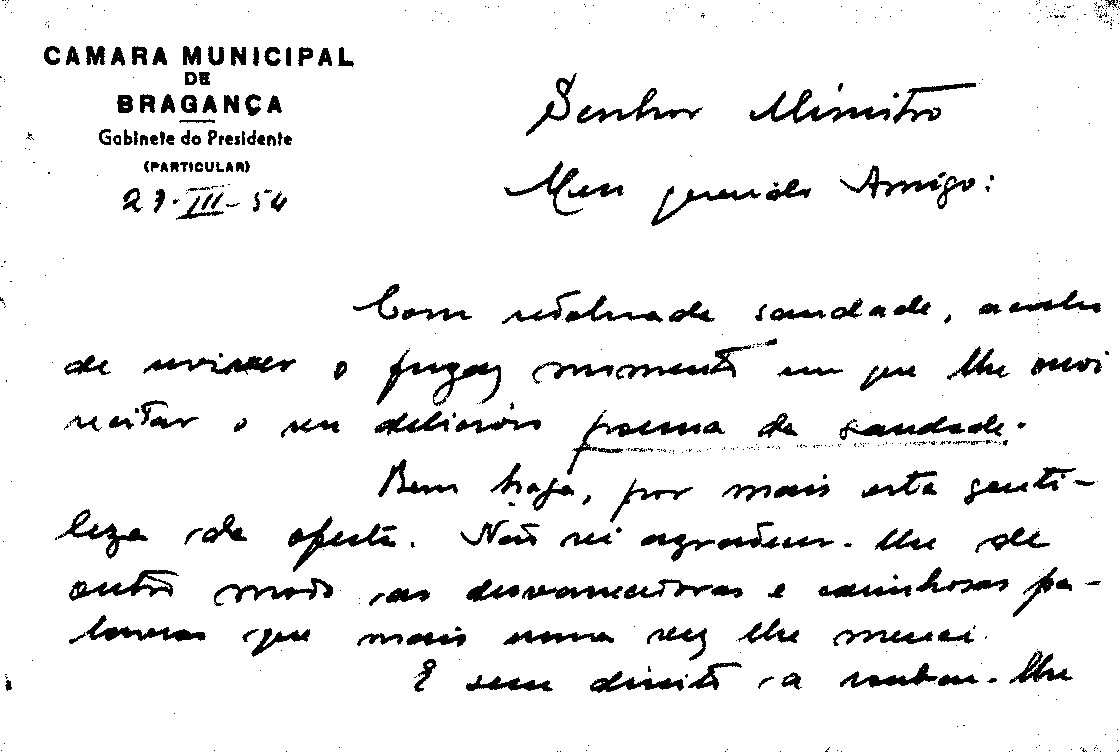 CAMARA MUNICIPAL
DE
BRAGANÇA
Gabinete do Presidente
(PARTICULAR)
Senhor Ministro
Meu querido Amigo:
Com redobrada saudade, acabo
de reviver o fugaz momento em que lhe ouvi
recitar o seu delicioso poema da saudade.
Bem haja, por mais esta genti-
leza da oferta. Não sei agradecer-lhe de
outro modo as desvanecedoras e carinhosas pa-
lavras que mais uma vez lhe mereci.
E sem direito a roubar-lhe